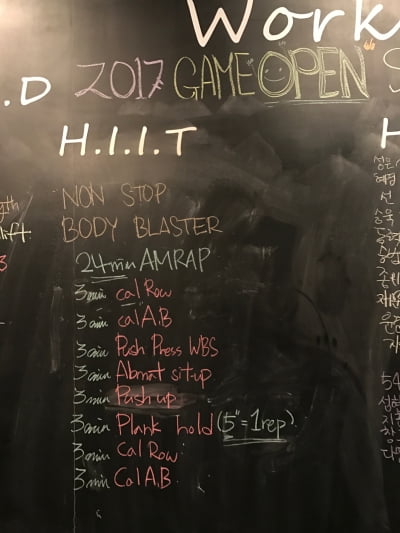 Work
.D 2017 GAME OPEN S
H.I.I.T
NON STOP
BODY BLASTER
24min AMRAP
3min cal Row
3min cal A.B
3min Push Press WBS
3min Abmat sit-up
3min Push up
3min Plank hold (5"=1rep)
3min Cal Row
3min Cal A.B
H
혜정
선
54
3